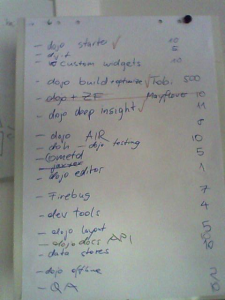 - dojo starter ✓ 10
- dijit 5
- custom widgets 10
- dojo build + optimize ✓ Tobi 500
- dojo + ZF Mayflower 10
- dojo deep insight ✓ 11
- dojo AIR 6
- doh - dojo testing 10
- Cometd 5
- dojo editor 1
- Firebug 7
- dev tools 4
- dojo layout 5
- dojo docs API 10
- data stores
- dojo offline 2
- QA 10